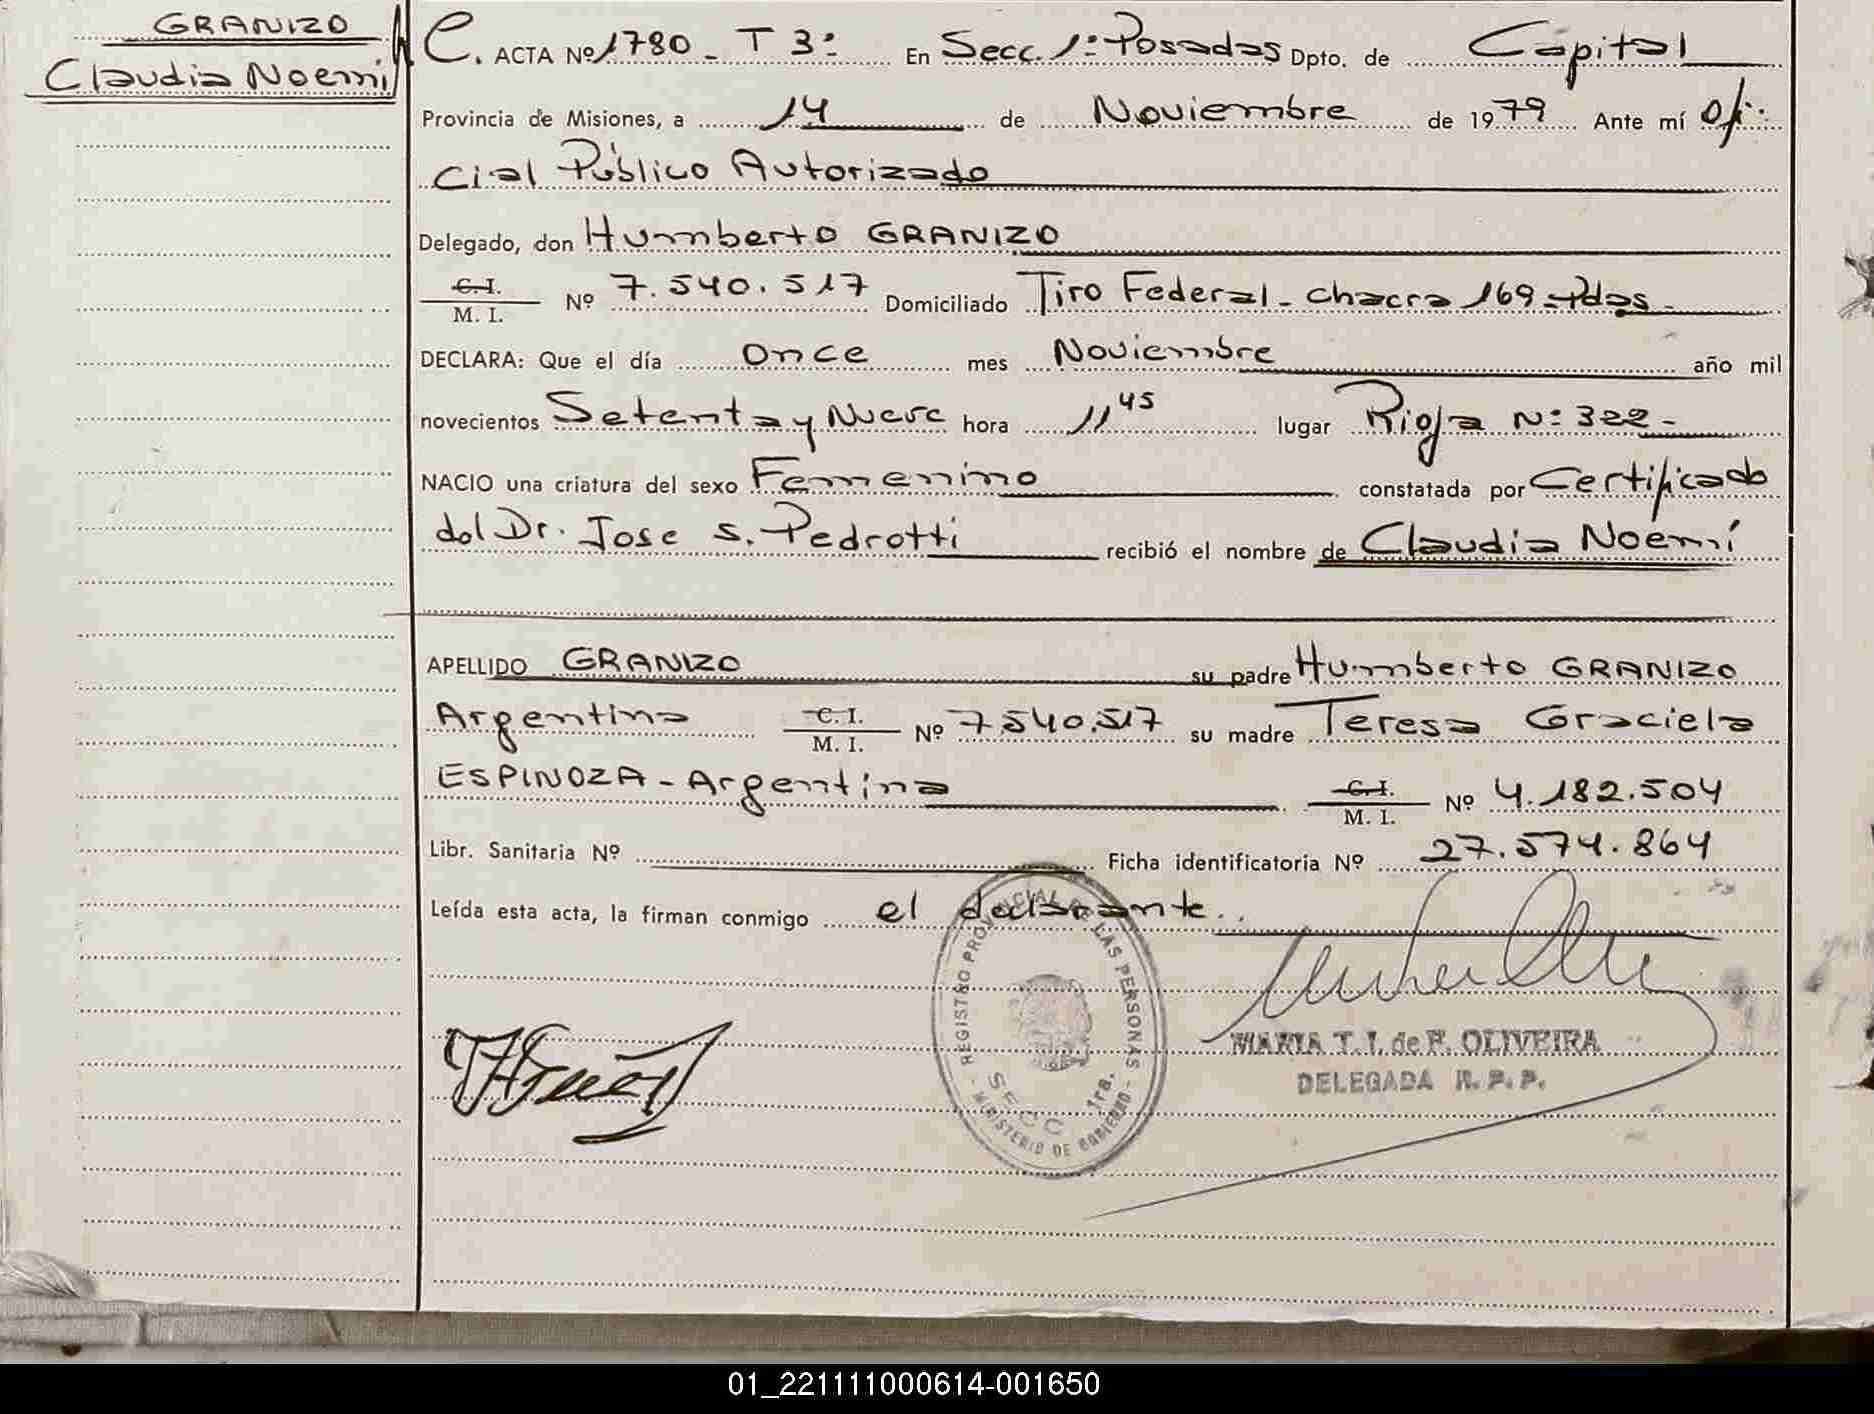 GRANIZO
Claudia Noemi
C. ACTA Nº 1780 - T 3º En Secc. 1º Posadas Dpto. de Capital
Provincia de Misiones, a 14 de Noviembre de 1979 Ante mí Ofi-
cial Público Autorizado
Delegado, don Humberto GRANIZO
C. I. / M. I. Nº 7.540.517 Domiciliado Tiro Federal - chacra 169 - Pdas -
DECLARA: Que el día once mes Noviembre año mil
novecientos Setenta y Nueve hora 11 45 lugar Rioja Nº 322 -
NACIO una criatura del sexo Femenino constatada por Certificado
del Dr. Jose S. Pedrotti recibió el nombre de Claudia Noemí
APELLIDO GRANIZO su padre Humberto GRANIZO
Argentino C. I. / M. I. Nº 7.540.517 su madre Teresa Graciela
ESPINOZA - Argentina C. I. / M. I. Nº 4.182.504
Libr. Sanitaria Nº Ficha identificatoria Nº 27.574.864
Leída esta acta, la firman conmigo el declarante..
REGISTRO PROVINCIAL DE LAS PERSONAS
SECC 1ra.
- MINISTERIO DE GOBIERNO -
MARIA T. I. de F. OLIVEIRA
DELEGADA R. P. P.
01_221111000614-001650